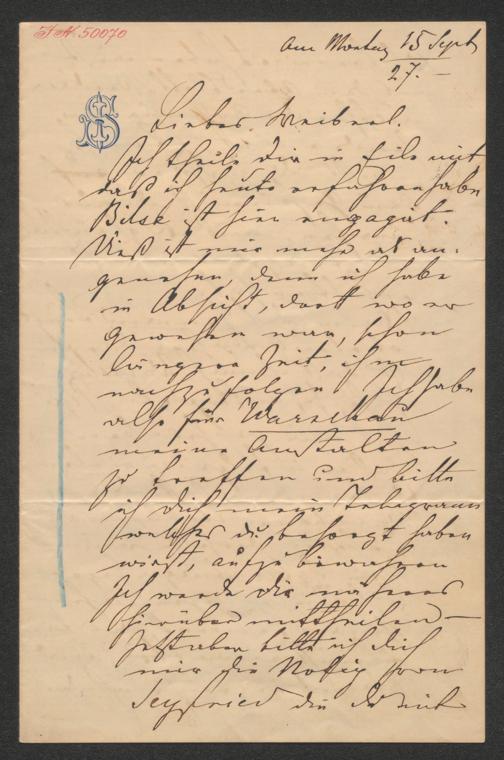 J.N. 50070
Am Montag 15 Sept
27. –
JS
Liebes Weiberl.
Ich theile dir in Eile mit
daß ich heute erfahren habe
Bilse ist hier engagirt.
Dieß ist mir mehr als an-
genehm, denn ich habe
in Absicht, dort wo er
gewesen war, schon
längere Zeit, ihm
nachzufolgen. Ich habe
also für Warschau
meine Anstalten
zu treffen und bitte
ich dich mein Telegramm
welches du besorgt haben
wirst, aufzubewahren
Ich werde dir näheres
hierüber mittheilen –
Jetzt aber bitte ich dich
mir die Notiz von
Seyfried die du mit